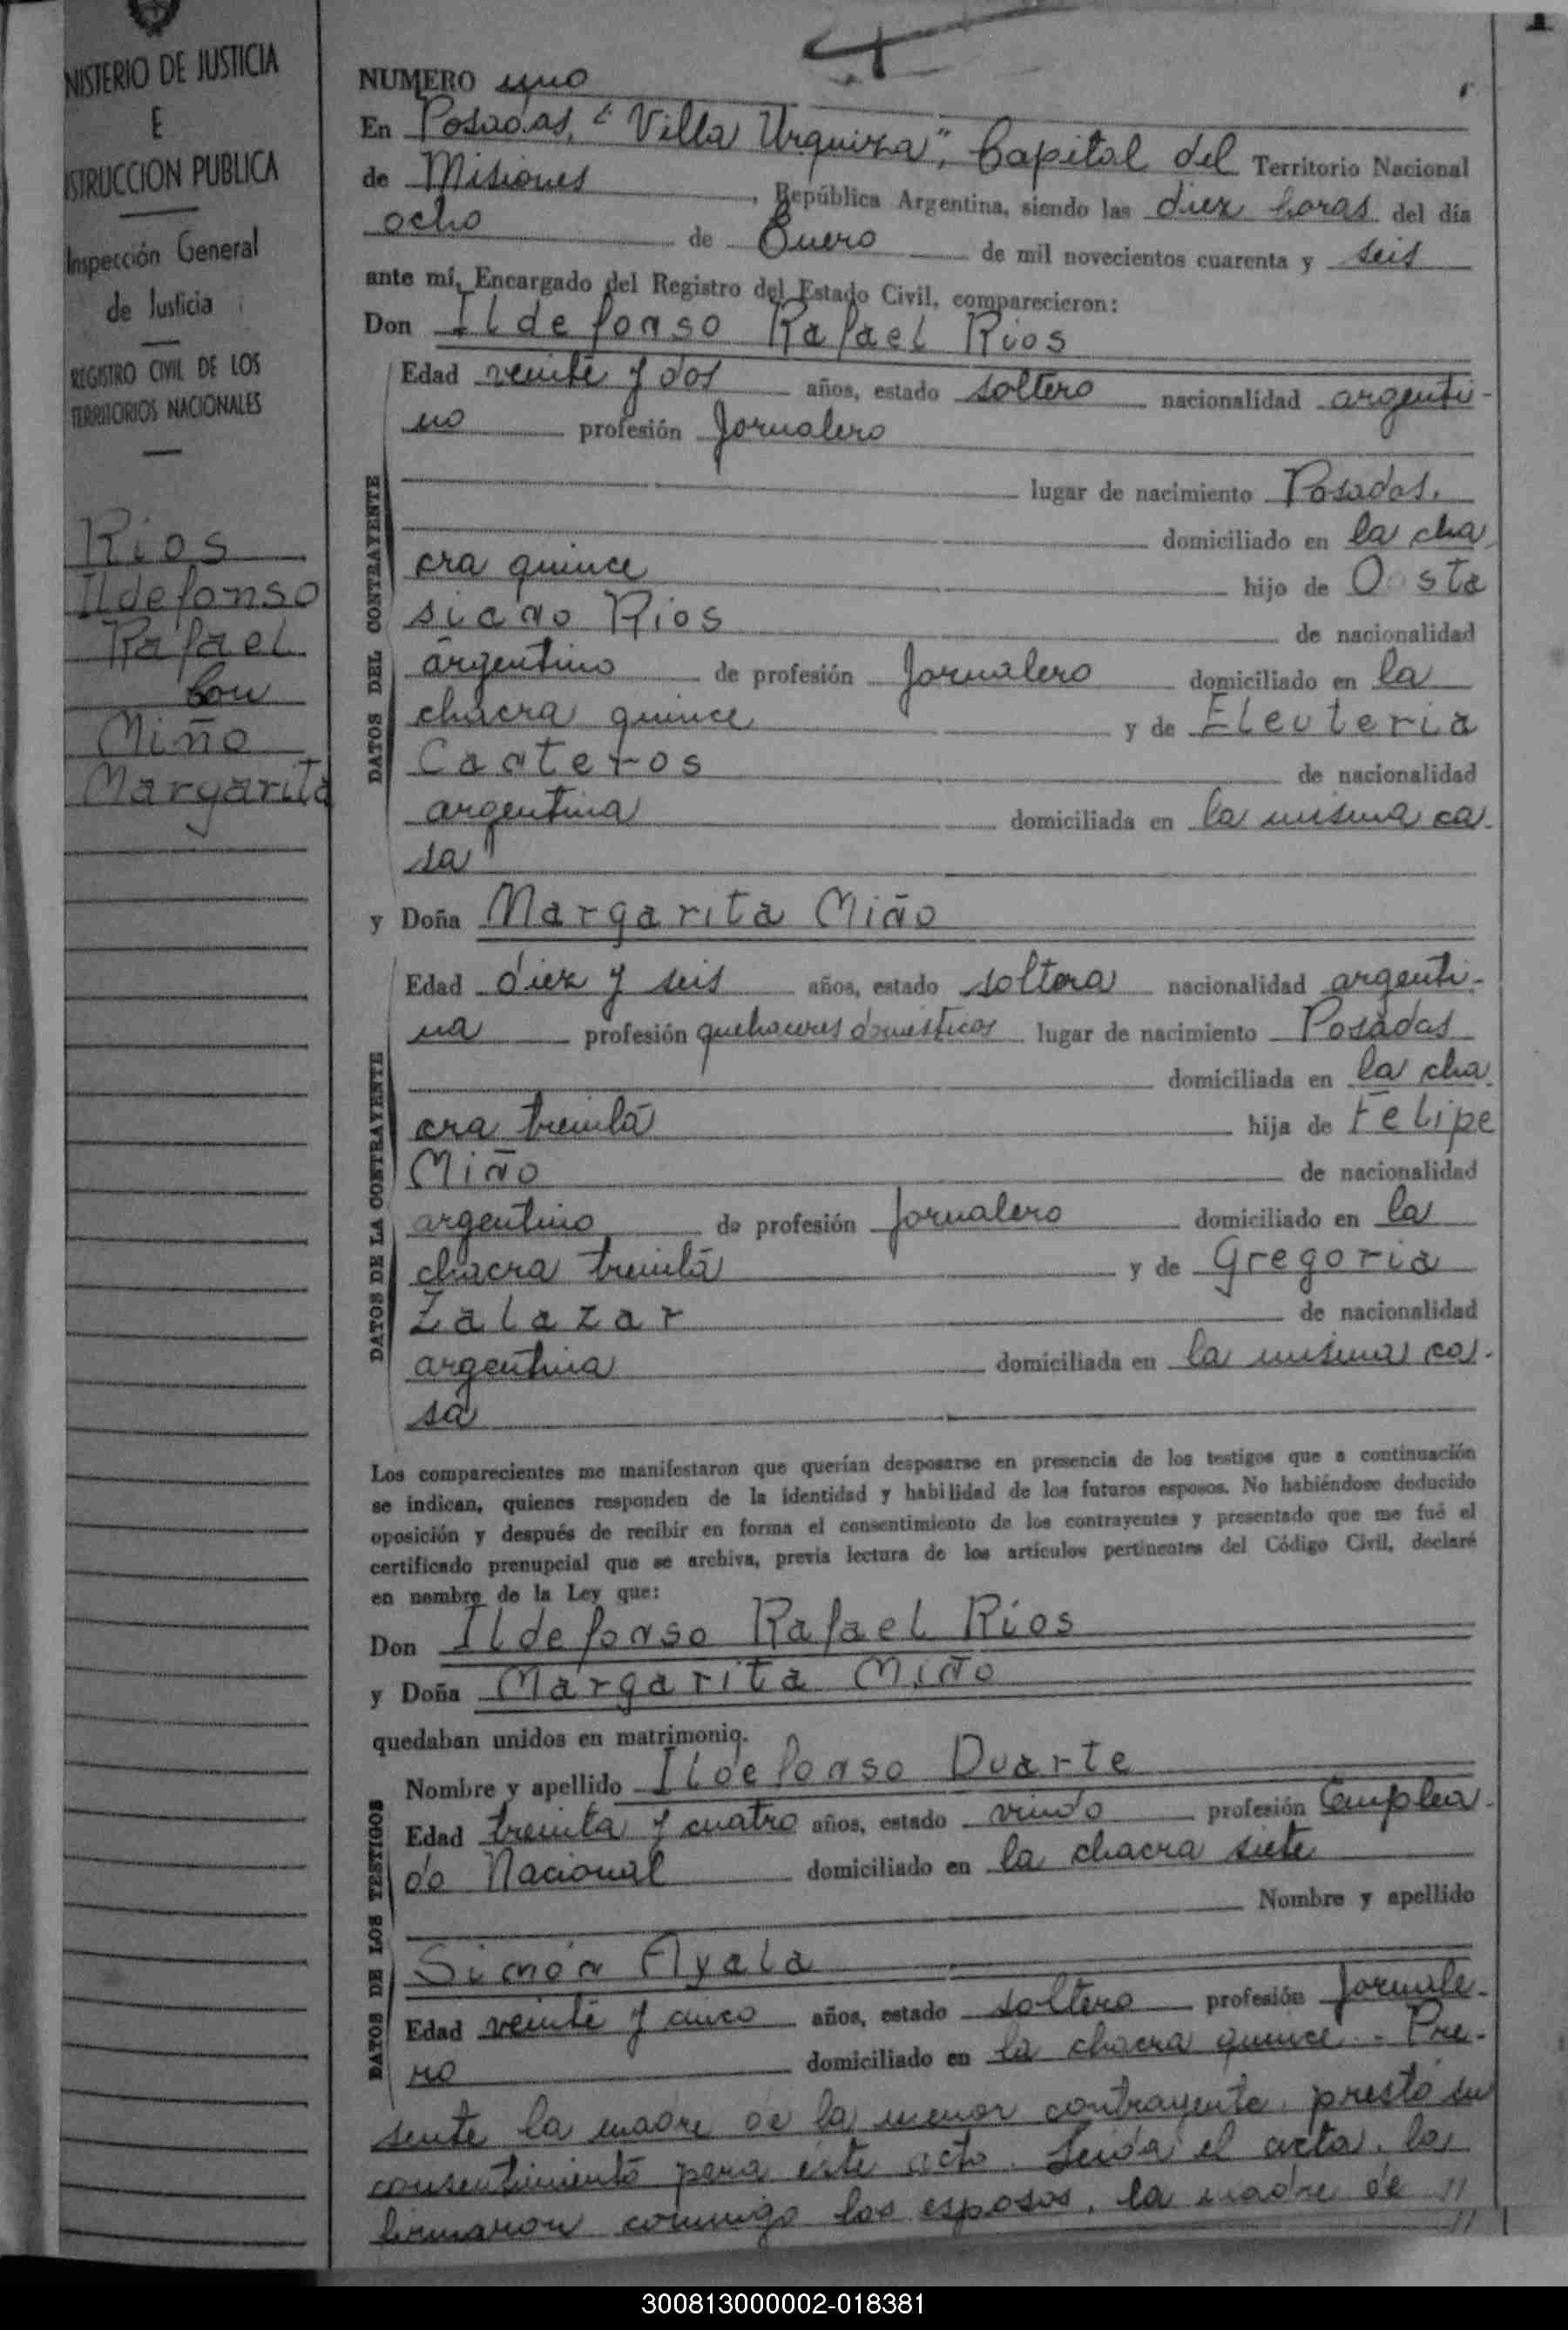 NISTERIO DE JUSTICIA
E
STRUCCION PUBLICA
Inspección General
de Justicia
REGISTRO CIVIL DE LOS
TERRITORIOS NACIONALES
Rios
Ildefonso
Rafael
Con
Miño
Margarita
NUMERO uno
En Posadas, "Villa Urquiza", Capital del Territorio Nacional
de Misiones, República Argentina, siendo las diez horas del día
ocho de Enero de mil novecientos cuarenta y seis
ante mí, Encargado del Registro del Estado Civil, comparecieron:
Don Ildefonso Rafael Rios
DATOS DEL CONTRAYENTE
Edad veinte y dos años, estado soltero nacionalidad argenti-
no profesión Jornalero
lugar de nacimiento Posadas.
domiciliado en la cha
cra quince hijo de
Rios de nacionalidad
argentino de profesión Jornalero domiciliado en la
chacra quince y de Eleuteria
de nacionalidad
argentina domiciliada en la misma ca-
sa
y Doña Margarita Miño
DATOS DE LA CONTRAYENTE
Edad diez y seis años, estado soltera nacionalidad argenti-
na profesión quehaceres domésticos lugar de nacimiento Posadas
domiciliada en la cha-
cra treinta hija de Felipe
Miño de nacionalidad
argentino de profesión Jornalero domiciliado en la
chacra treinta y de Gregoria
Zalazar de nacionalidad
argentina domiciliada en la misma ca-
sa
Los comparecientes me manifestaron que querían desposarse en presencia de los testigos que a continuación
se indican, quienes responden de la identidad y habilidad de los futuros esposos. No habiéndose deducido
oposición y después de recibir en forma el consentimiento de los contrayentes y presentado que me fué el
certificado prenupcial que se archiva, previa lectura de los artículos pertinentes del Código Civil, declaré
en nombre de la Ley que:
Don Ildefonso Rafael Rios
y Doña Margarita Miño
quedaban unidos en matrimonio.
DATOS DE LOS TESTIGOS
Nombre y apellido Ildefonso Duarte
Edad treinta y cuatro años, estado viudo profesión Emplea-
do Nacional domiciliado en la chacra siete
Nombre y apellido
Simón Ayala
Edad veinte y cinco años, estado soltero profesión Jornale-
ro domiciliado en la chacra quince.- Pre-
sente la madre de la menor contrayente, prestó su
consentimiento para éste acto. Leída el acta, la
firmaron conmigo los esposos, la madre de //
//
300813000002-018381